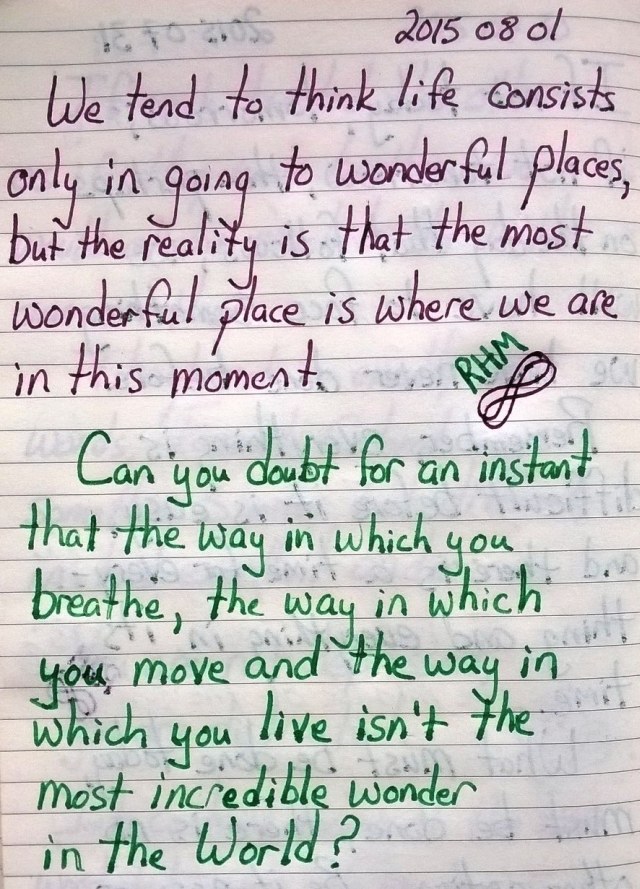 2015 08 01
We tend to think life consists
only in going to wonderful places,
but the reality is that the most
wonderful place is where we are
in this moment.
RHM
Can you doubt for an instant
that the way in which you
breathe, the way in which
you move and the way in
which you live isn't the
most incredible wonder
in the World?